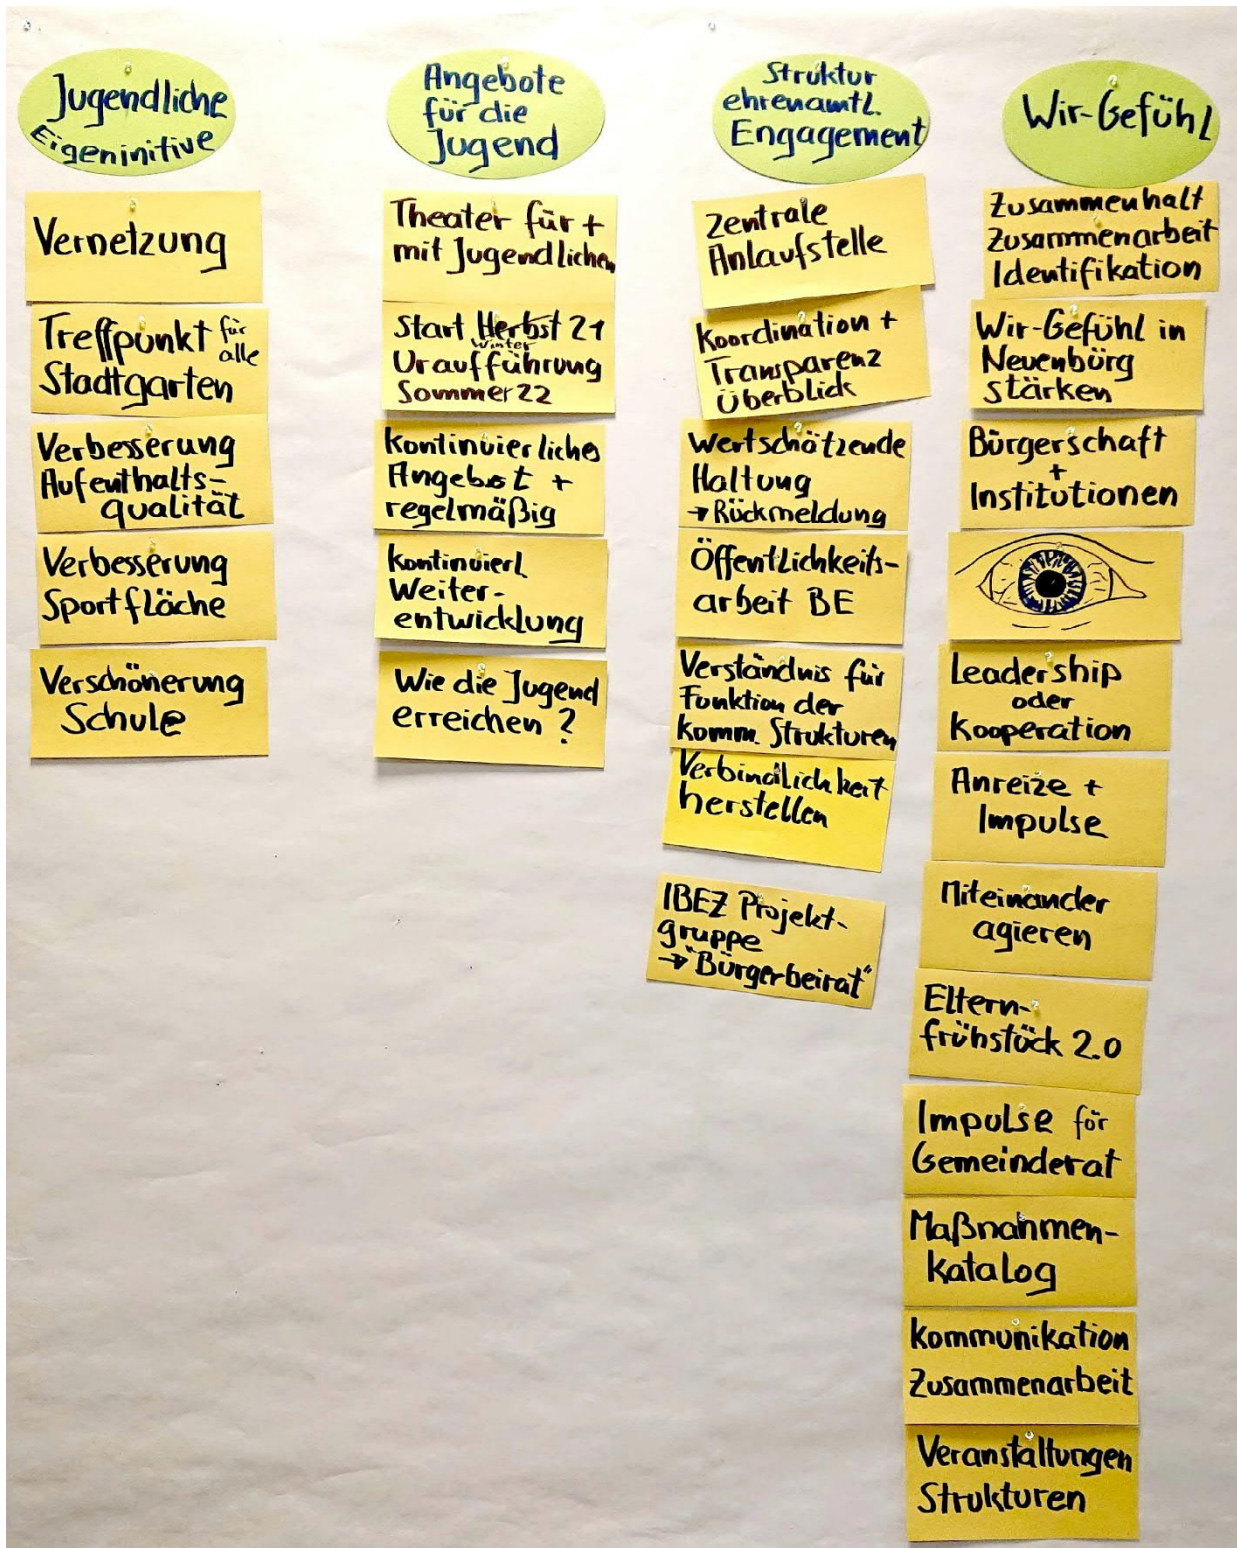 Jugendliche
Eigeninitive
Vernetzung
Treffpunkt für
alle
Stadtgarten
Verbesserung
Aufenthalts-
qualität
Verbesserung
Sportfläche
Verschönerung
Schule
Angebote
für die
Jugend
Theater für +
mit Jugendlichen
Start Herbst 21
Winter
Uraufführung
Sommer 22
Kontinuierliches
Angebot +
regelmäßig
Kontinuierl.
Weiter-
entwicklung
Wie die Jugend
erreichen ?
Struktur
ehrenamtl.
Engagement
Zentrale
Anlaufstelle
Koordination +
Transparenz
Überblick
Wertschätzende
Haltung
→ Rückmeldung
Öffentlichkeits-
arbeit BE
Verständnis für
Funktion der
komm. Strukturen
Verbindlichkeit
herstellen
IBEZ Projekt-
gruppe
→ "Bürgerbeirat"
Wir-Gefühl
Zusammenhalt
Zusammenarbeit
Identifikation
Wir-Gefühl in
Neuenbürg
stärken
Bürgerschaft
+
Institutionen
Leadership
oder
Kooperation
Anreize +
Impulse
Miteinander
agieren
Eltern-
frühstück 2.0
Impulse für
Gemeinderat
Maßnahmen-
katalog
Kommunikation
Zusammenarbeit
Veranstaltungen
Strukturen